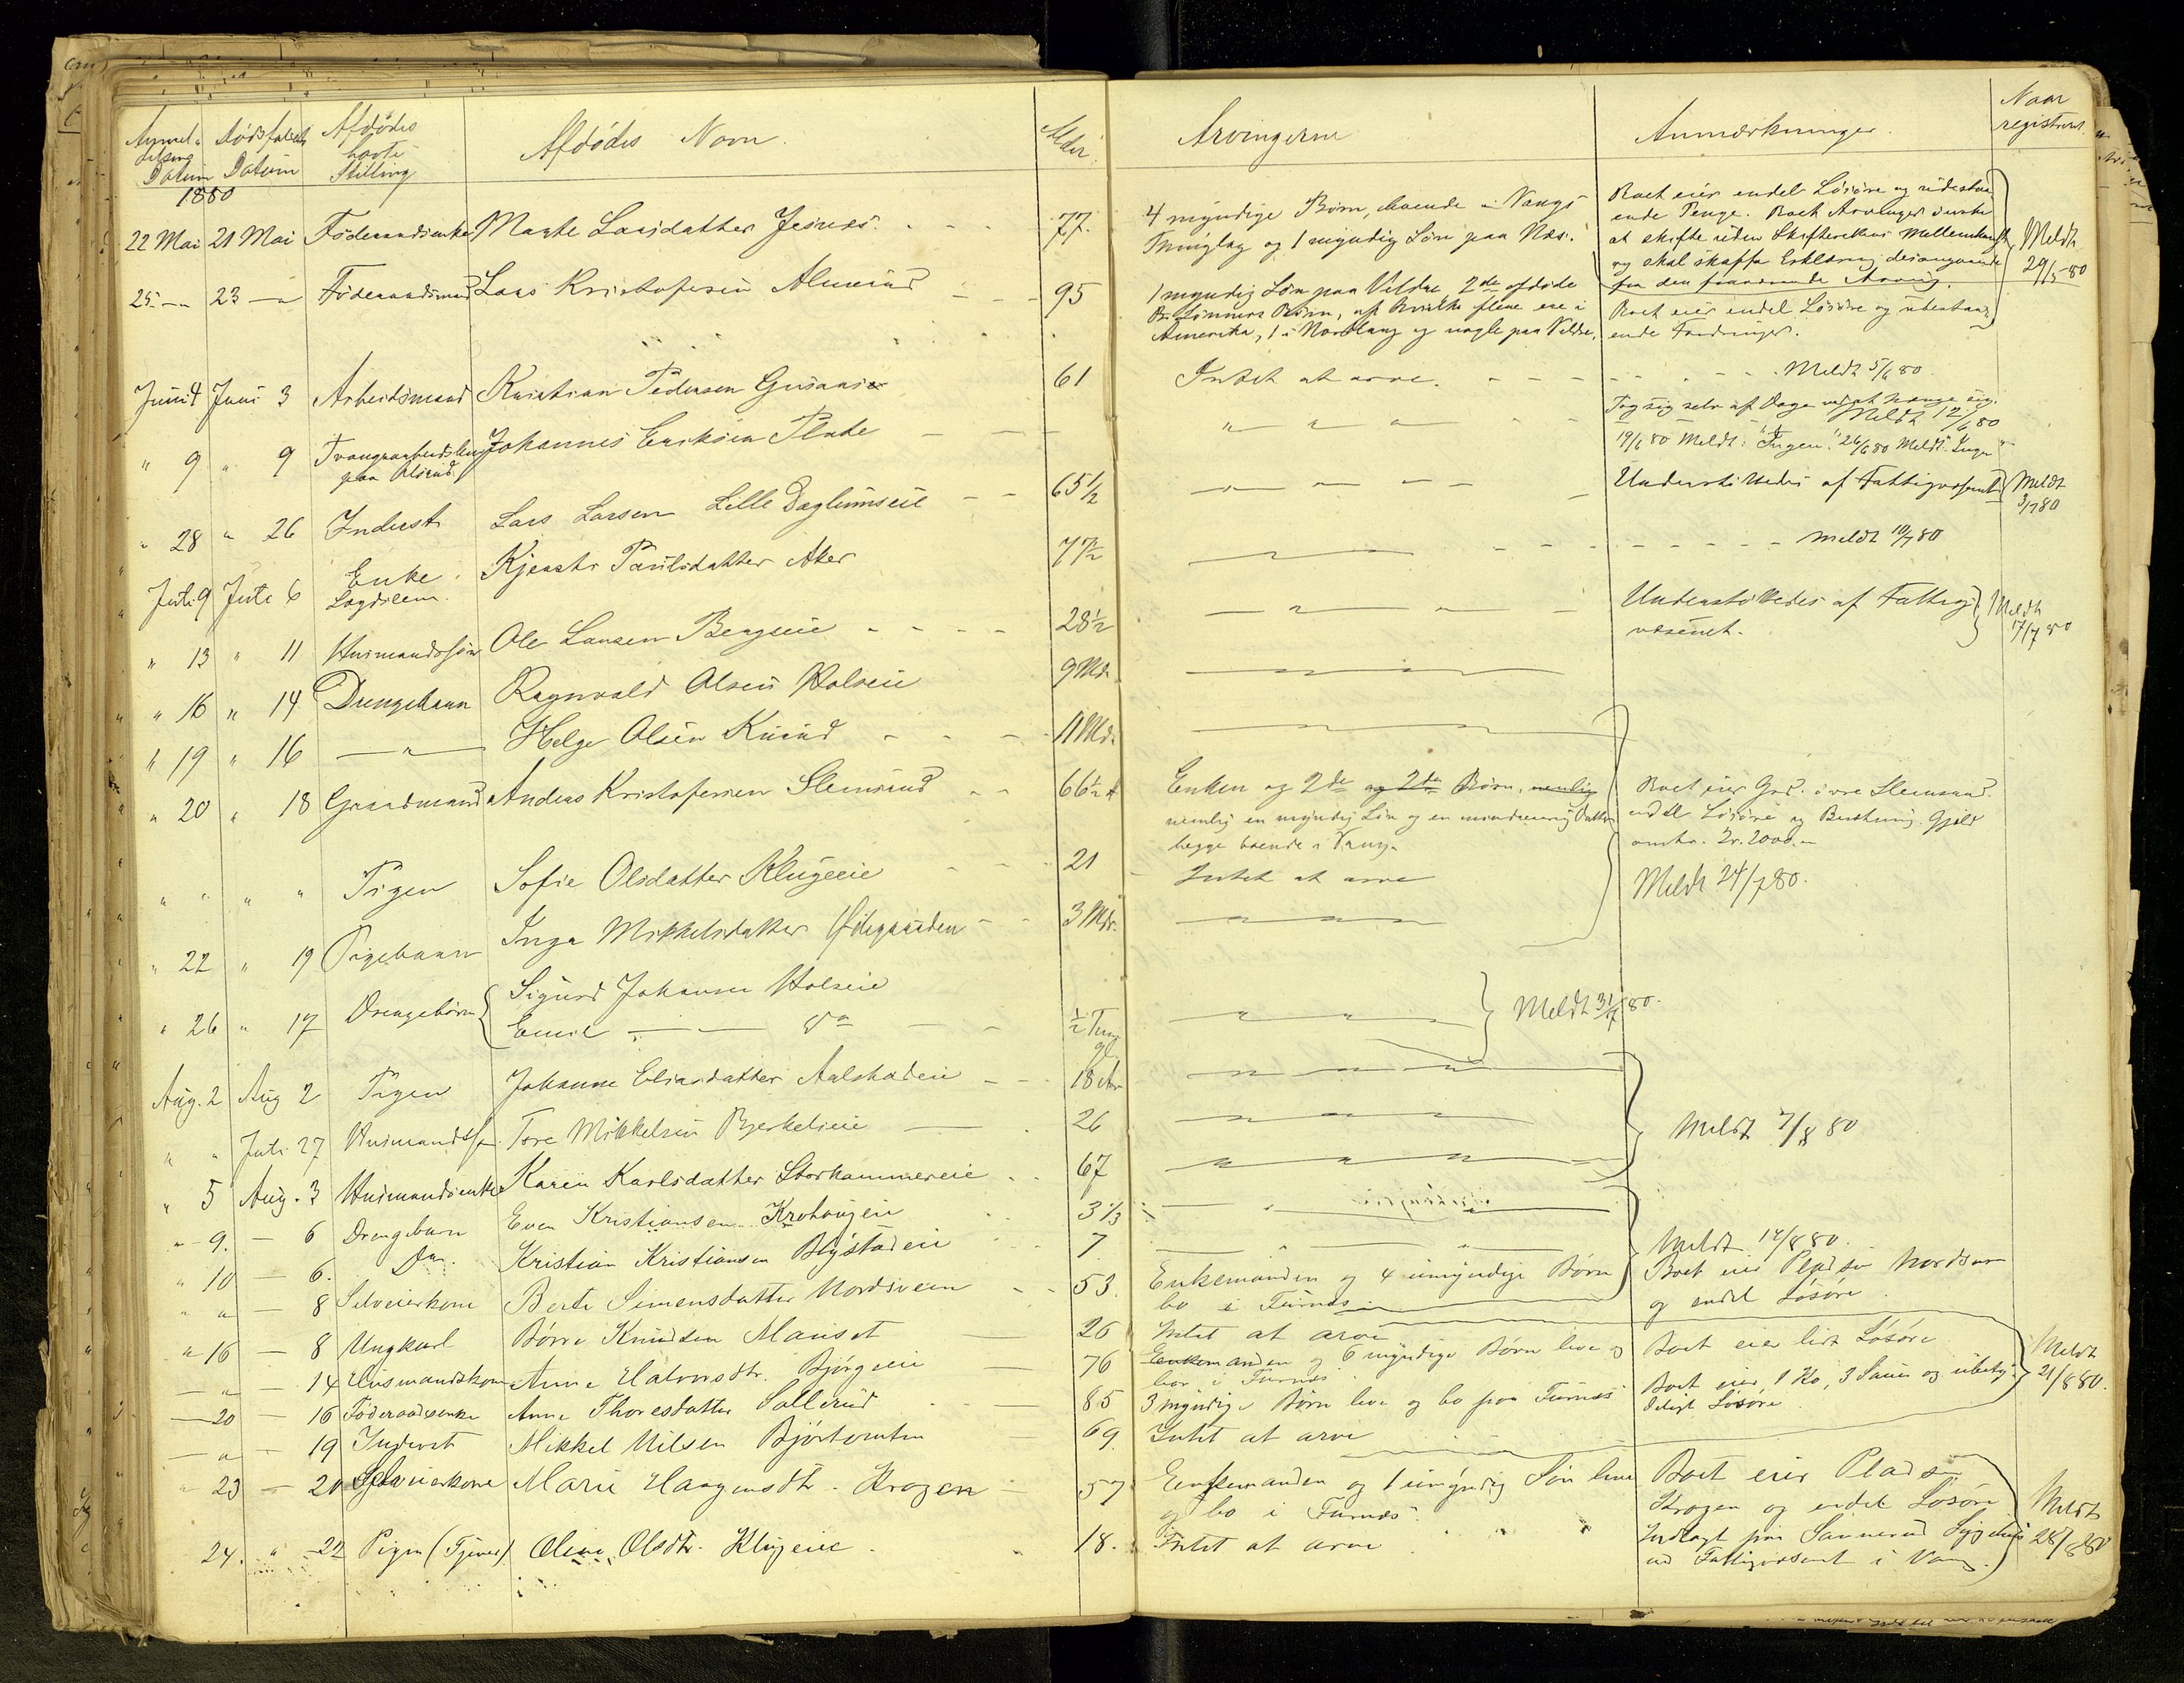 Anmel-
delsens
Datum
Dødsfaldets
Datum
Afdødes
havte
Stilling
Afdødes Navn.
Alder.
Arvingerne
Anmærkninger.
Naar
registreret.
1880
22 Mai 21 Mai Föderaadsenke Marte Larsdatter Jesnes. 77.
4 myndige Børn, boende i Vangs
Thinglag og 1 myndig Søn paa Næs.
Boet eier endel Løsøre og udestaa-
ende Penge. Boet Arvinger ønske
at skifte uden Skifterettens Mellemkomst
og skal skaffe Erklæring desangaaende
fra den fraværende Arving.
Meldt
29/5 80
25 — " 23 — " Föderaadsmand Lars Kristofersen Almerud 95
1 myndig Søn paa Veldre, 2de afdøde
Sønners Børn, af hvilke flere ere i
Amerika, 1 i Nordlang og nogle paa Veldre.
Boet eier endel Løsøre og udestaa-
ende Fordringer.
Juni 4 Juni 3 Arbeidsmand Kristian Pedersen Gusaas 61 Intet at arve. Meldt 5/6 80.
" 9 " 9 Tvangsarbeidslem
paa Alsrud
Johannes Eriksen
Tog sig selv af Dage ved at hænge sig.
Meldt 12/6 80
19/6 80 Meldt: "Ingen". 26/6 80 Meldt "Ingen"
" 28 " 26 Inderst Lars Larsen Lille Daglumseie 65 1/2 Understöttedes af Fattigvæsenet Meldt
3/7 80
Juli 9 Juli 6 Enke.
Lægdslem.
Kjersti Paulsdatter Aker 77 1/2 Meldt 10/7 80
" 13 " 11 Husmandssøn Ole Larsen Bergseie 28 1/2 Understöttedes af Fattig-
væsenet.
Meldt
17/7 80
" 16 " 14 Drengebarn Ragnvald Olsen Holseie 9 Mdr.
" 19 " 16 — " — Helge Olsen Kurud 11 Mdr.
" 20 " 18 Gaardmand Anders Kristofersen Slemsrud 66 1/2
Enken og 2de og 2de Børn, nemlig
nemlig en myndig Søn og en mindreaarig Datter
begge boende i Vang.
Boet eier Grd. øvre Slemsrud.
endel Løsøre og Besætning. Gjeld
omtr. Kr. 2000.
" " " " Pigen Sofie Olsdatter Klugeeie 21 Intet at arve
Meldt 24/7 80.
" 22 " 19 Pigebarn Inga Mikkelsdatter Ødegaarden 3 Mdr.
" 26 " 17 Drengebörn Sigurd Johansen Holseie
Emil — " — do 1/2 Time
Meldt 31/7 80.
Aug. 2 Aug 2 Pigen Johanne Eliasdatter Aalstadeie 18 Aar
" " Juli 27 Husmandssøn Tore Mikkelsen Bjerkelieie 26
Meldt 7/8 80
" 5 Aug. 3 Husmandsenke Karen Karlsdatter Storhammereie 67
" 9. — 6 Drengebarn Even Kristiansen Krohaugeie 3 1/3
" 10 — 6. Do. Kristian Kristiansen Bystadeie 7
Meldt 14/8 80.
" " — 8 Selveierkone Berte Simensdatter Nordsveen 53.
Enkemanden og 4 umyndige Børn
bo i Furnæs
Boet eier Pladsen Nordsveen
og endel Løsøre
" 16 — 8 Ungkarl Børre Knudsen Mauset 26 Intet at arve
Boet eier lidt Løsøre
— " — 14 Husmandskone Anne Halvorsdtr. Bjørgeeie 76
Enkemanden og 6 myndige Børn leve og
bor i Furnæs
Boet eier 1 Ko, 3 Sauer og ubety-
deligt Løsøre
Meldt
21/8 80.
— 20 — 16 Föderaadsenke Anne Thoresdatter Sollerud 85 3 myndige Børn leve og bo paa Furnæs
— " — 19 Inderst Mikkel Nilsen Bjørtomten 69. Intet at arve
" 23 — 20 Selveierkone Marie Haagensdtr. Krogen 57
Enkemanden og 1 umyndig Søn leve
og bo i Furnæs
Boet eier Pladsen
Krogen og endel Løsøre
24. " 22 Pigen (Tjener) Oline Olsdtr. Klugeeie 18. Intet at arve
Indlagt paa Sannerud Sygehus
ved Fattigvæsenet i Vang.
Meldt
28/8 80